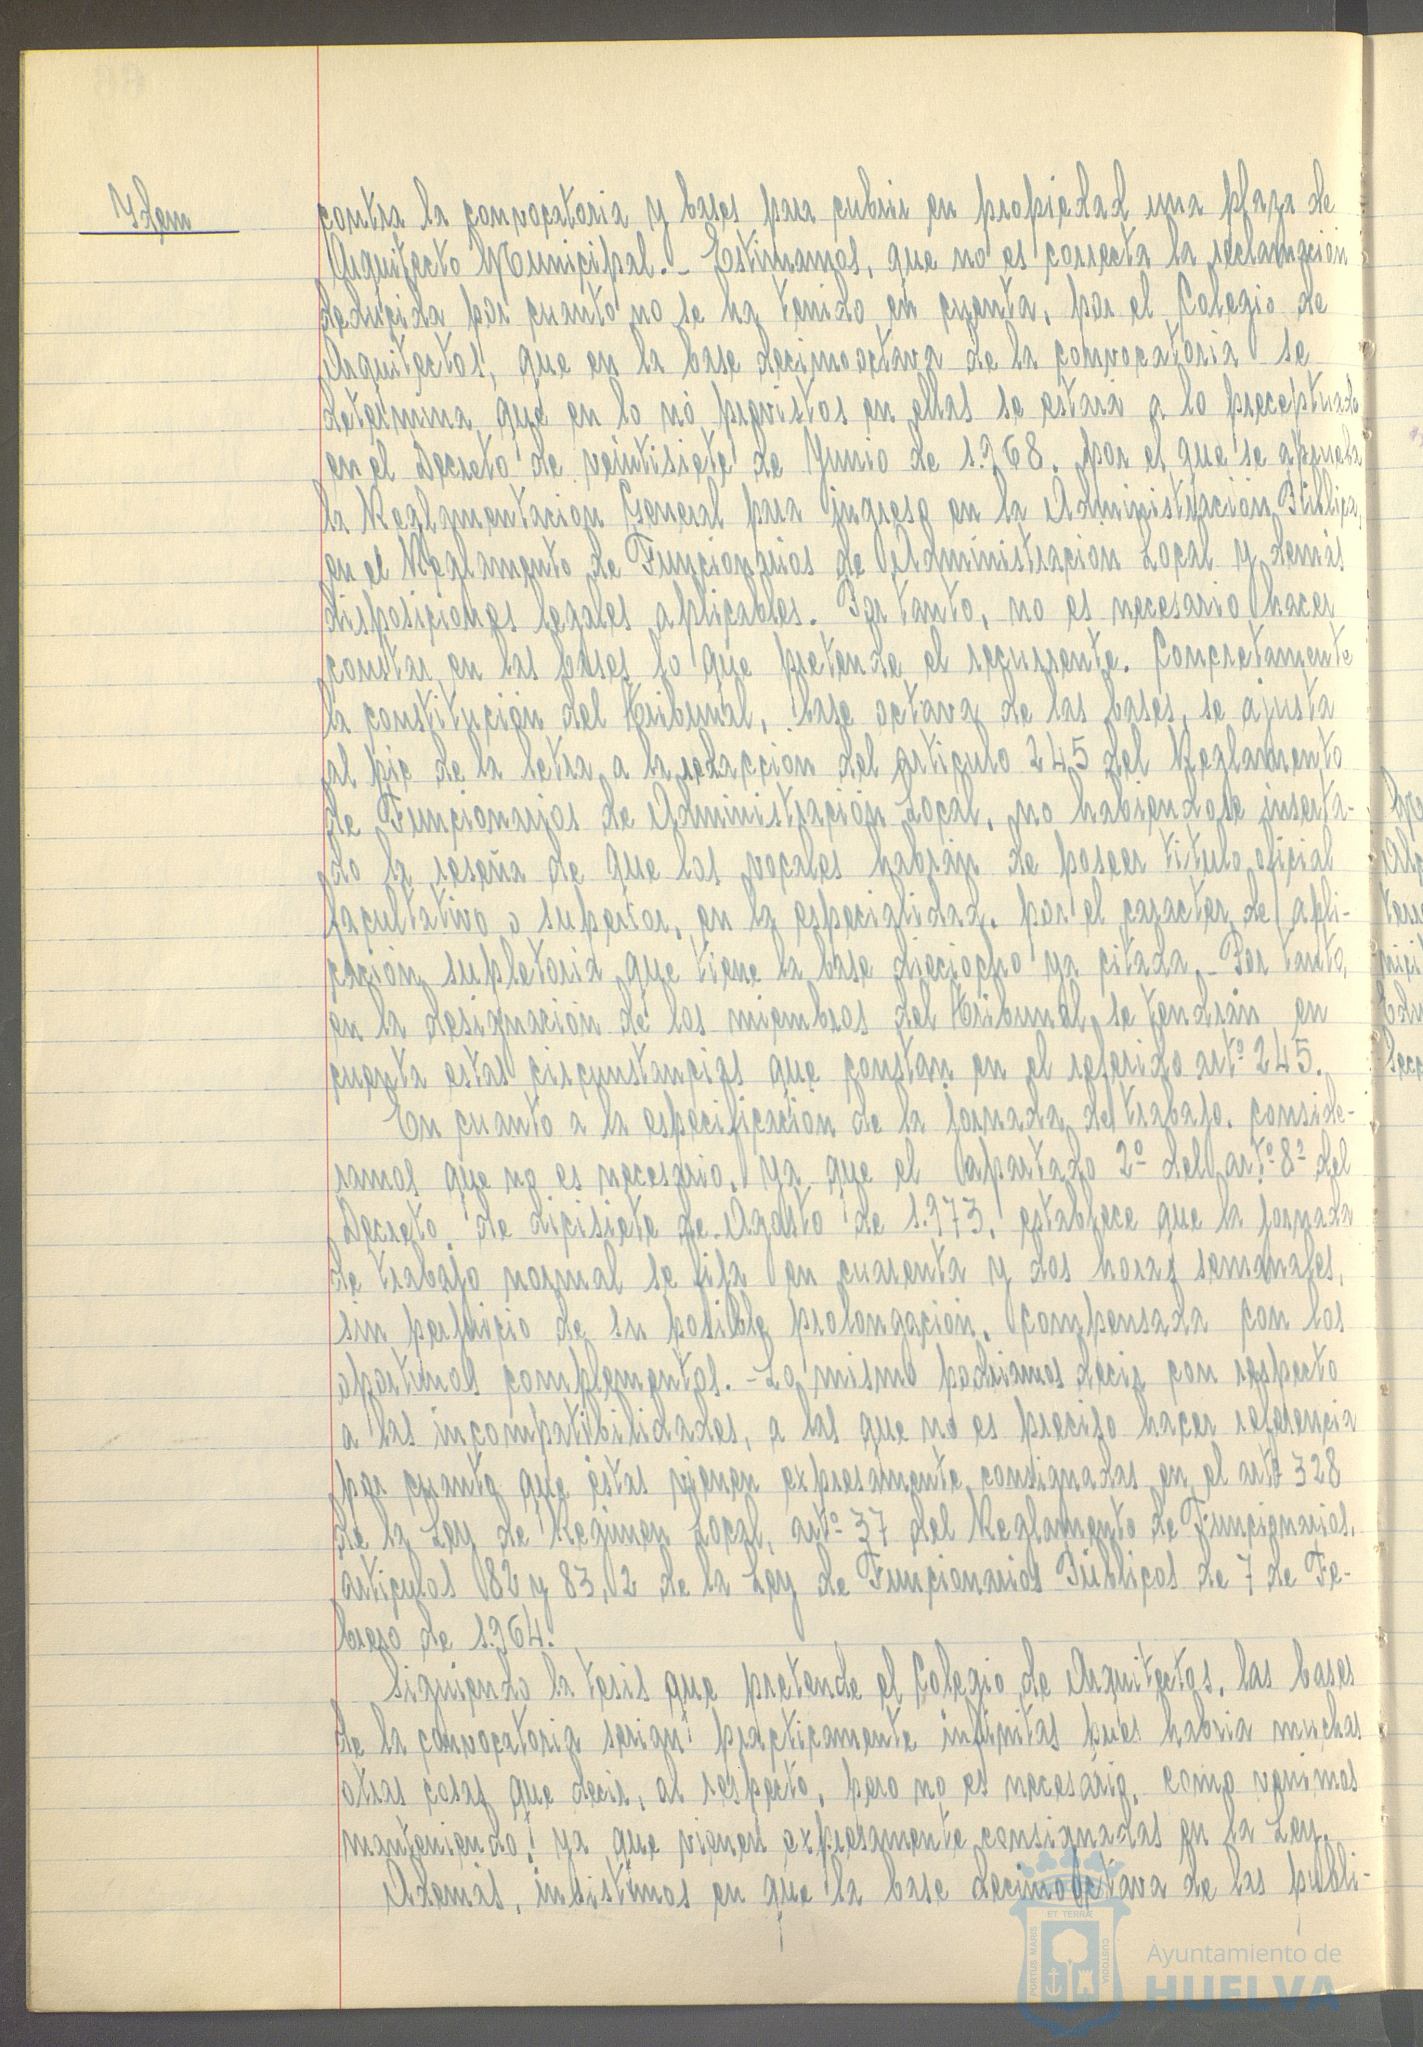 Idem
contra la convocatoria y bases para cubrir en propiedad una plaza de
Arquitecto Municipal.- Estimamos, que no es correcta la reclamación
deducida por cuanto no se ha tenido en cuenta, por el Colegio de
Arquitectos, que en la base decimoctava de la convocatoria se
determina que en lo no previstos en ellas se estará a lo preceptuado
en el Decreto de veintisiete de Junio de 1.968, por el que se aprueba
la Reglamentación General para ingreso en la Administración Pública,
en el Reglamento de Funcionarios de Administración Local y demás
disposiciones legales aplicables. Por tanto, no es necesario hacer
constar en las bases lo que pretende el recurrente. Concretamente
la constitución del Tribunal, base octava de las bases, se ajusta
al pie de la letra a la redacción del articulo 245 del Reglamento
de Funcionarios de Administración Local, no habiendose inserta-
do la reseña de que los vocales habrán de poseer titulo oficial
facultativo o superior, en la especialidad, por el caracter de apli-
cación supletoria que tiene la base dieciocho ya citada.- Por tanto,
en la designación de los miembros del Tribunal se tendrán en
cuenta estas circunstancias que constan en el referido artº 245.
En cuanto a la especificación de la jornada de trabajo, conside-
ramos que no es necesario, ya que el apartado 2º del artº 8º del
Decreto de dicisiete de Agosto de 1.973, establece que la jornada
de trabajo normal se fija en cuarenta y dos horas semanales,
sin perjuicio de su posible prolongación, compensada con los
oportunos complementos.- Lo mismo podriamos decir con respecto
a las incompatibilidades, a las que no es preciso hacer referencia
por cuanto que éstas vienen expresamente consignadas en el artº 328
de la Ley de Régimen Local, artº 37 del Reglamento de Funcionarios,
articulos 82 y 83,2 de la Ley de Funcionarios Públicos de 7 de Fe-
brero de 1.964.
Siguiendo la tesis que pretende el Colegio de Arquitectos, las bases
de la convocatoria serian practicamente infinitas pues habria muchas
otras cosas que decir, al respecto, pero no es necesario, como venimos
manteniendo, ya que vienen expresamente consignadas en la Ley.
Además, insistimos en que la base decimooctava de las publi-
PORTUS MARIS ET TERRAE CUSTODIA
Ayuntamiento de
HUELVA